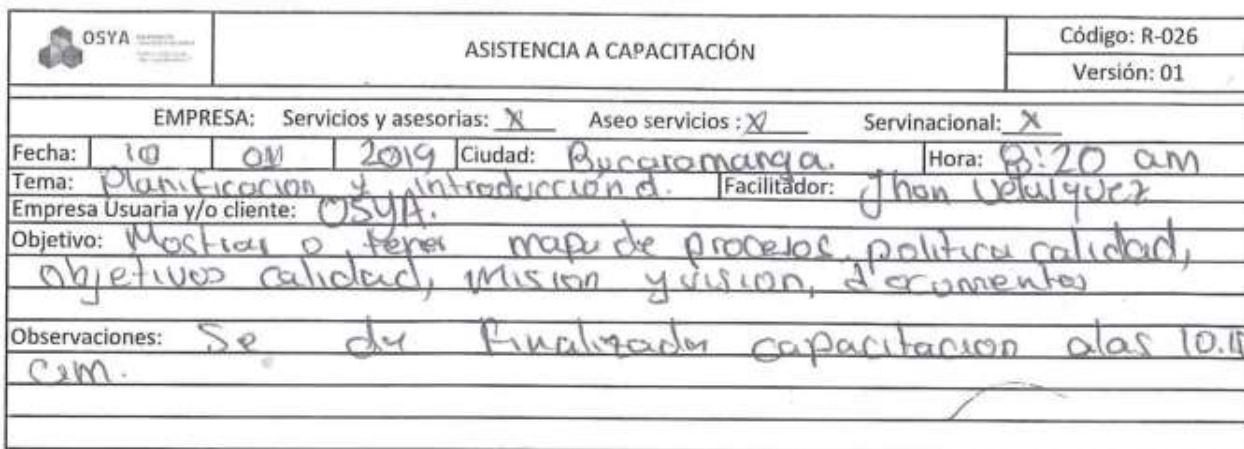 OSYA
ASISTENCIA A CAPACITACIÓN
Código: R-026
Versión: 01
EMPRESA: Servicios y asesorias: X Aseo servicios : X Servinacional: X
Fecha: 10 2019 Ciudad: Bucaramanga. Hora: 8:20 am
Tema: Planificacion y introducción d. Facilitador: Jhon Velasquez
Empresa Usuaria y/o cliente: OSYA.
Objetivo: Mostrar o tener mapa de procesos, politica calidad,
objetivos calidad, mision y vision, documentos
Observaciones: Se da finalizada capacitacion alas 10.15
am.